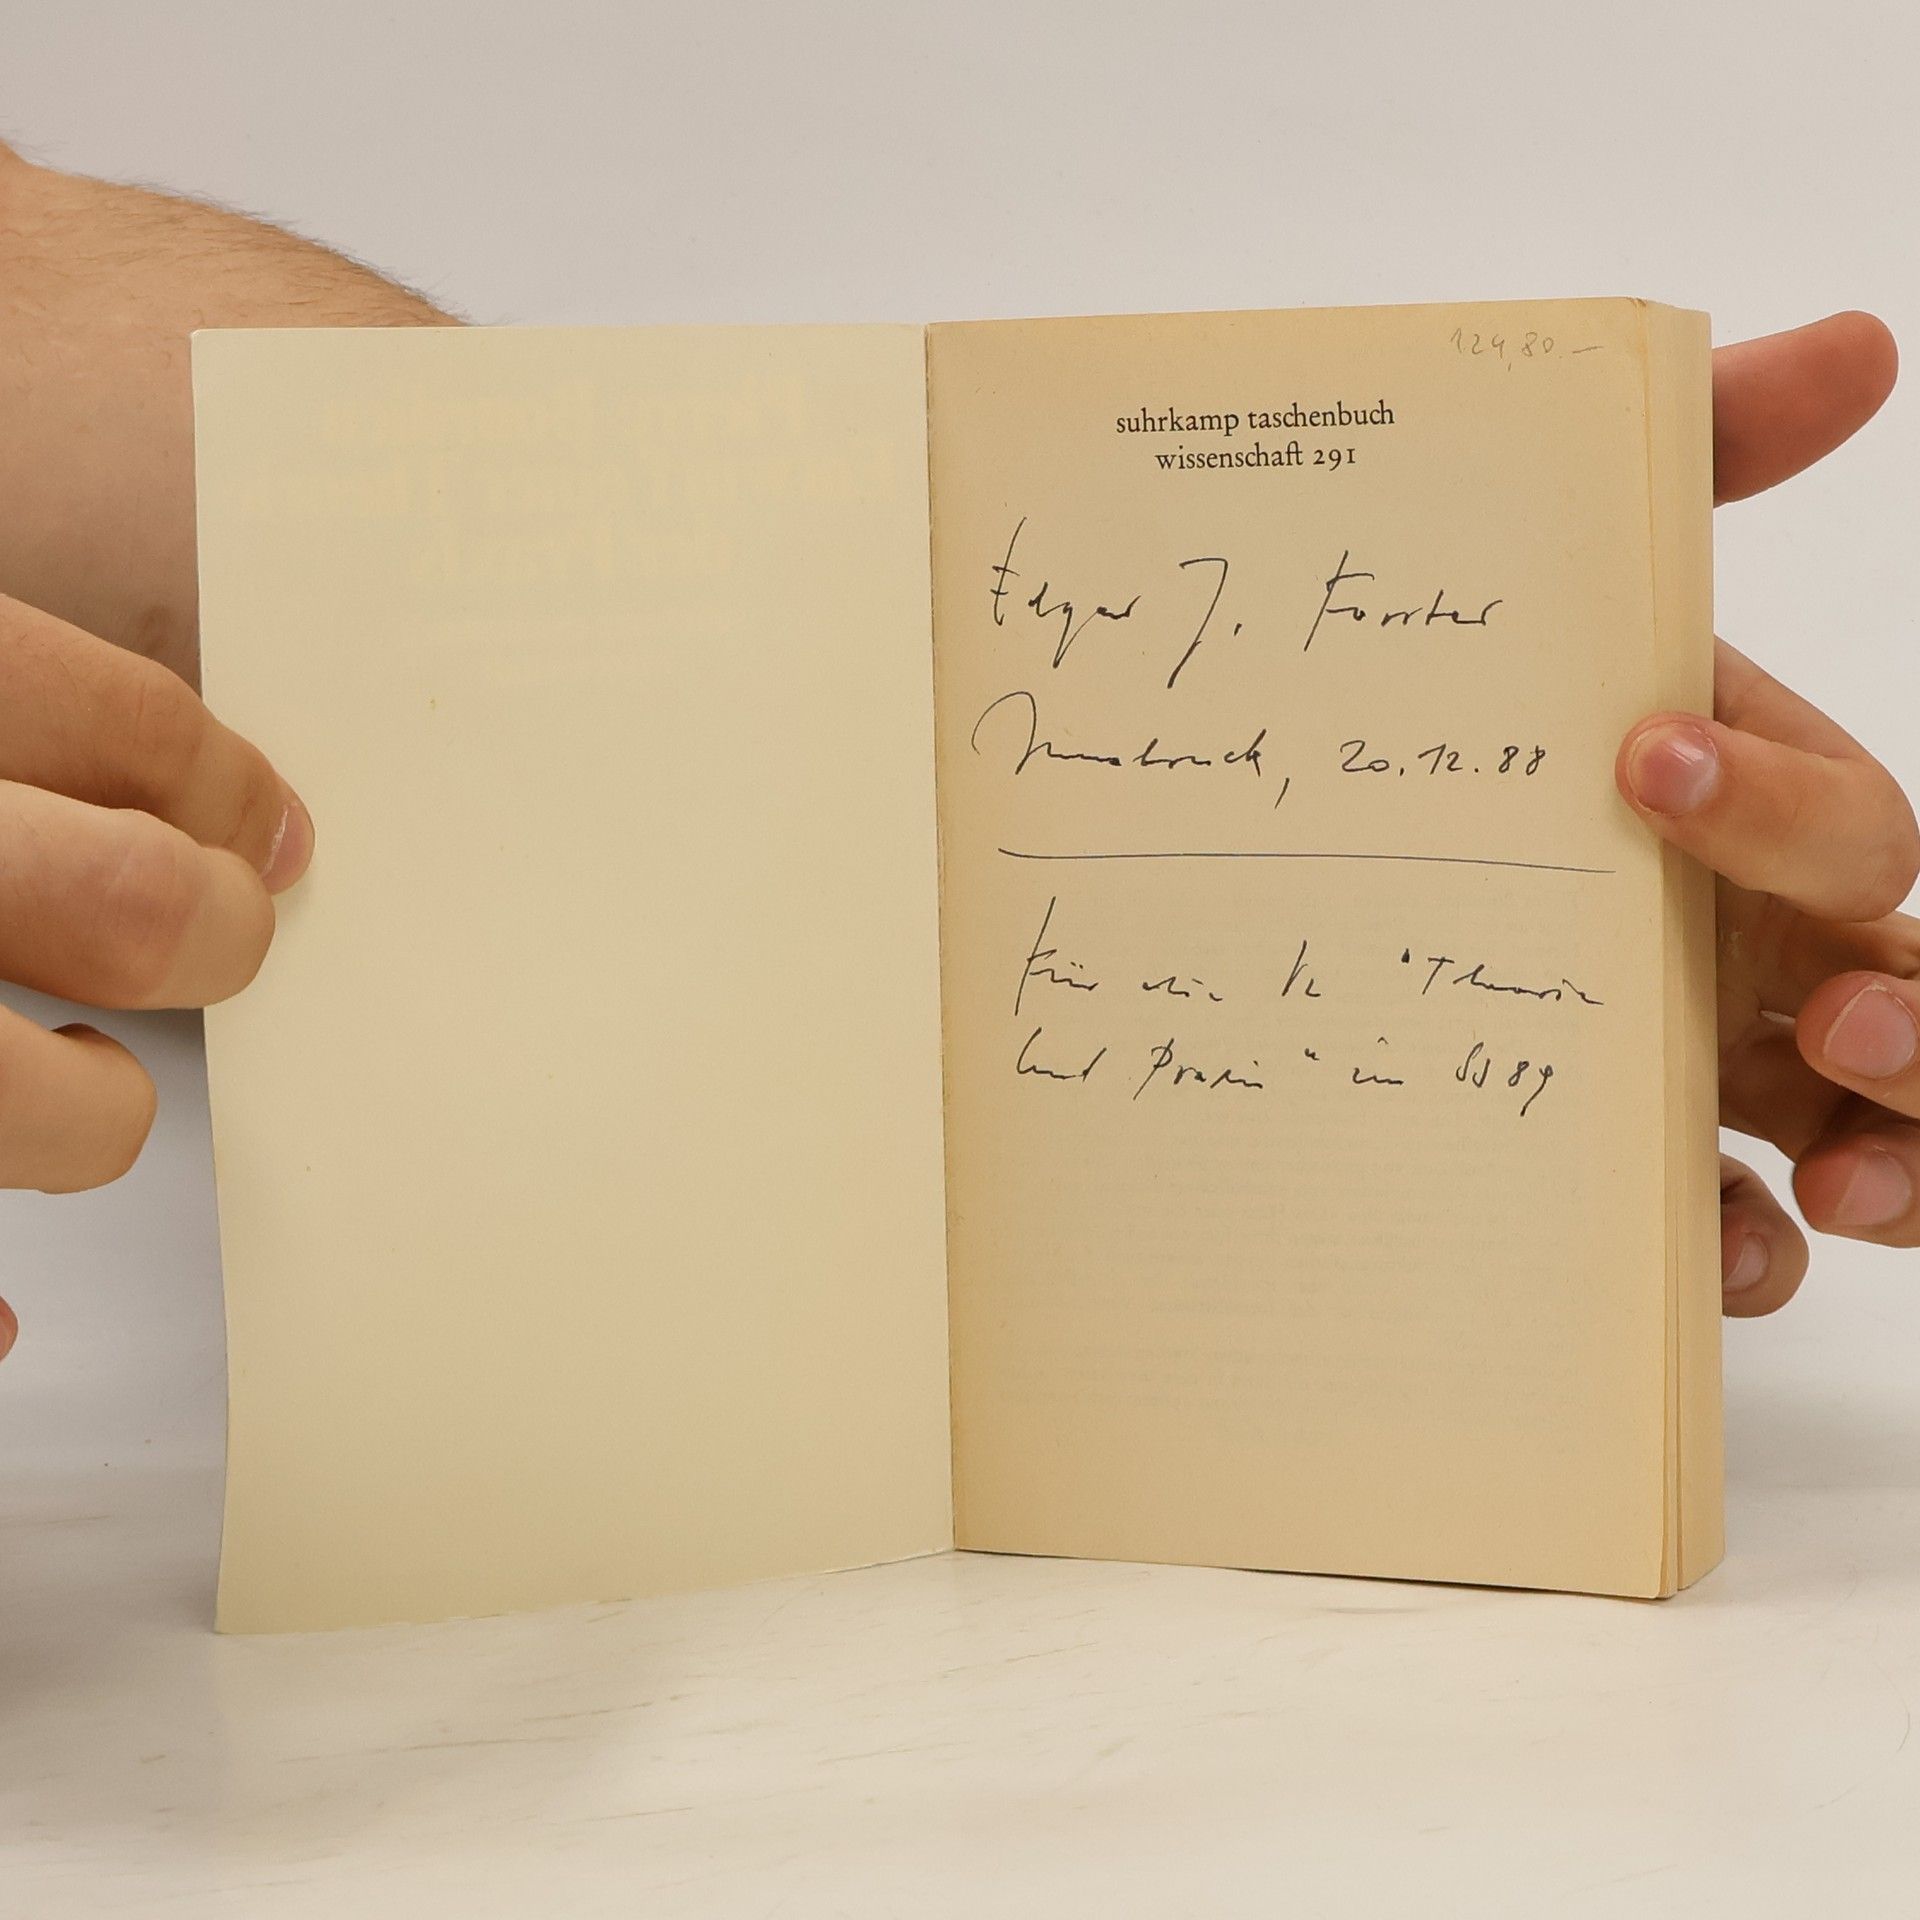 124,80.—
suhrkamp taschenbuch
wissenschaft 291
Edgar J. Forster
Innsbruck, 20.12.88
Für die "Theorie
und Praxis" im SS 89